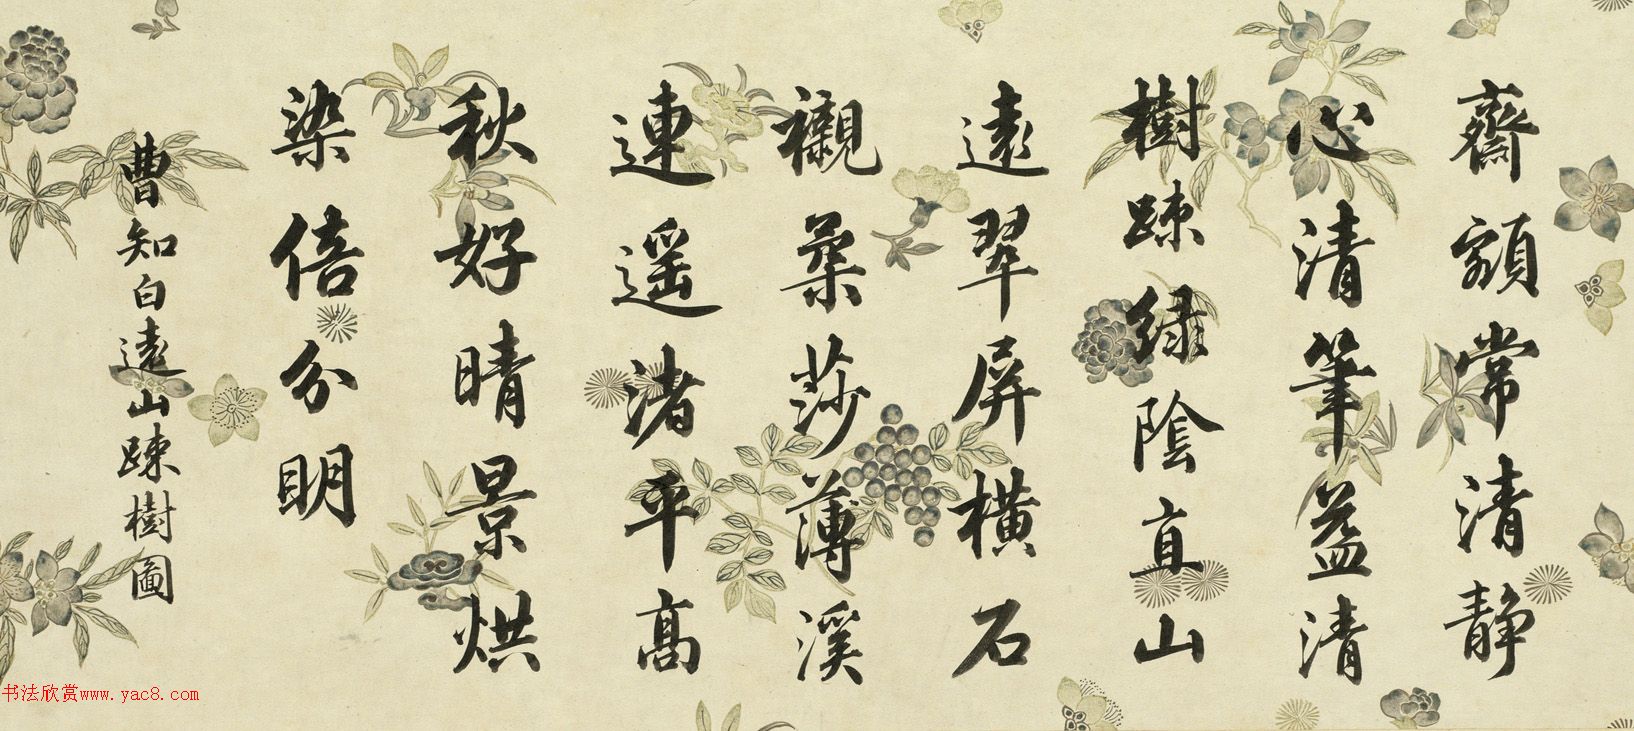 齋額常清静
心清筆益清
樹疎緑陰直山
遠翠屏橫石
襯葉莎薄溪
連遥渚平高
秋好晴景烘
染倍分明
曹知白遠山疎樹圖
书法欣赏www.yac8.com